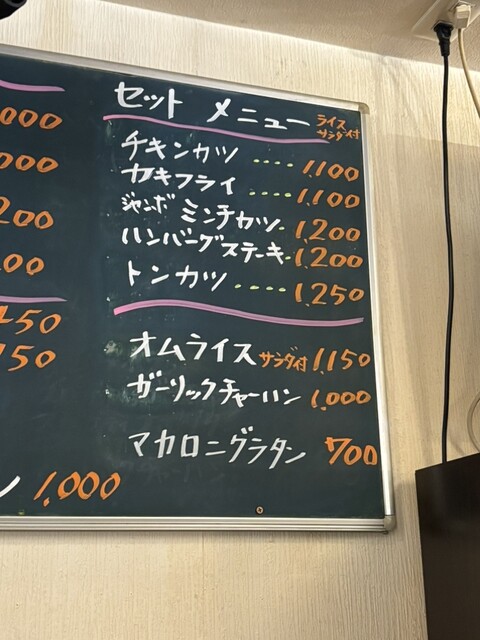 000
000
200
00
450
150
ン 1,000
セット メニュー ライス サラダ付
チキンカツ ‥‥ 1,100
カキフライ ‥‥ 1,100
ジャンボ ミンチカツ‥ 1,200
ハンバーグステーキ‥ 1,200
トンカツ ‥‥‥ 1,250
オムライス サラダ付 1,150
ガーリックチャーハン 1,000
マカロニグラタン 700